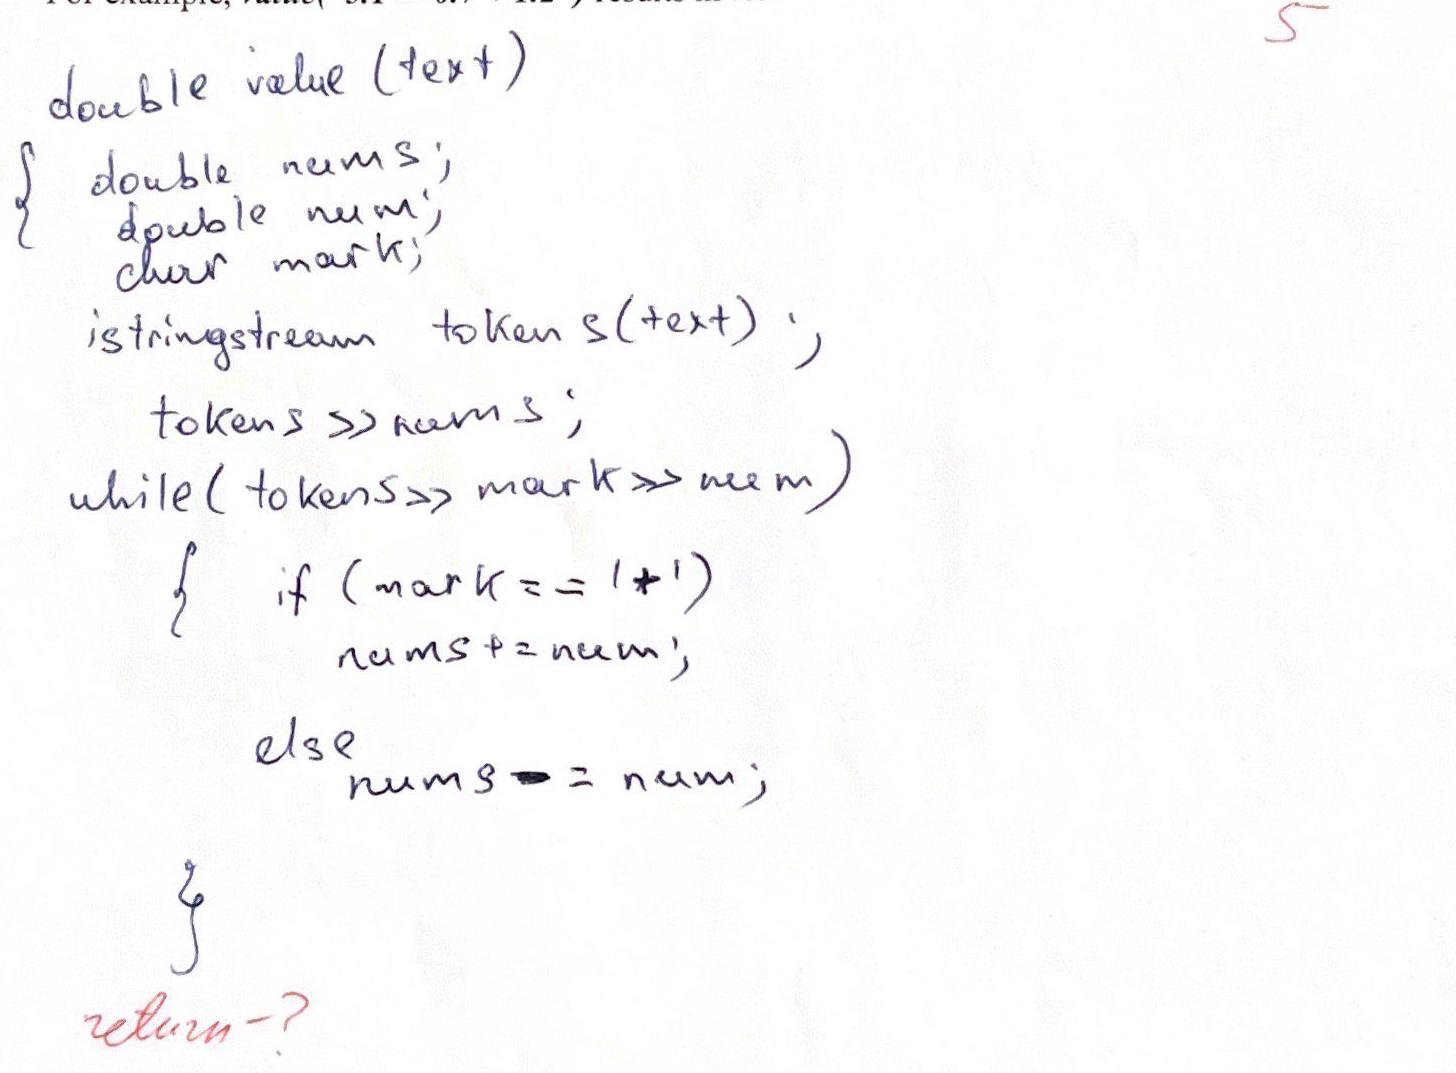 double value (text)
5-
{ double nums;
double num;
char mark;
istringstream tokens(text);
tokens >> nums;
while( tokens>> mark>> num)
{ if (mark == '+')
nums += num;
else
nums -= num;
}
return-?